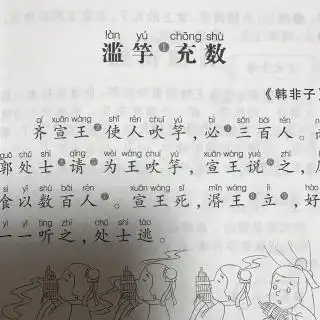 làn yú chōng shù
滥竽❶充数
《韩非子》
qí xuān wáng shǐ rén chuī yú bì sān bǎi rén
齐宣王❷使人吹竽,必❸三百人。
guō chǔ shì qǐng wèi wáng chuī yú xuān wáng yuè zhī
郭处士❹请❺为王吹竽,宣王说❻之,
sì yǐ shù bǎi rén xuān wáng sǐ mǐn wáng lì hào
食以数百人❽。宣王死,湣王❾立❿,好
yī yī tīng zhī chǔ shì táo
一一听之,处士逃。